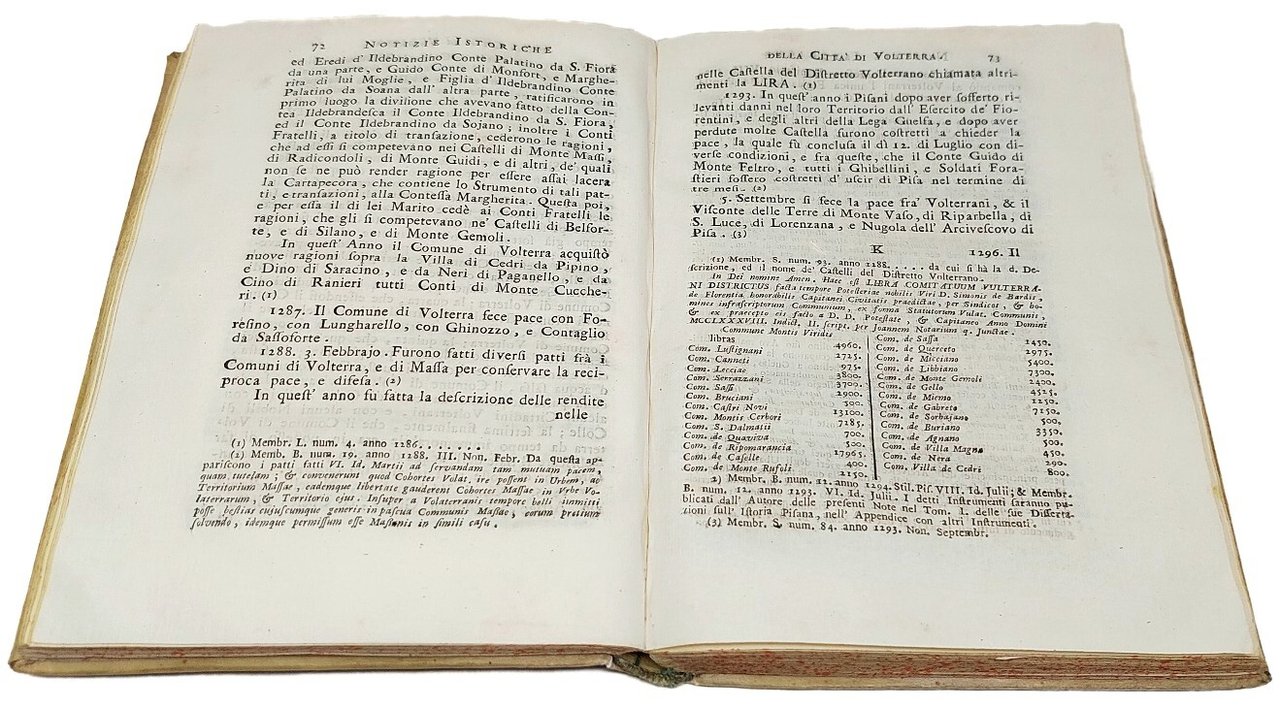 72 NOTIZIE ISTORICHE
ed Eredi d' Ildebrandino Conte Palatino da S. Fiora
da una parte, e Guido Conte di Monfort, e Marghe-
rita di lui Moglie, e Figlia d' Ildebrandino Conte
Palatino da Soana dall' altra parte, ratificarono in
primo luogo la divisione che avevano fatto della Con-
tea Ildebrandesca il Conte Ildebrandino da S. Fiora,
ed il Conte Ildebrandino da Sojano; inoltre i Conti
Fratelli, a titolo di transazione, cederono le ragioni,
che ad essi si competevano nei Castelli di Monte Massi,
di Radicondoli, di Monte Guidi, e di altri, de' quali
non se ne può render ragione per essere assai lacera
la Cartapecora, che contiene lo Strumento di tali pat-
ti, e transazioni, alla Contessa Margherita. Questa poi,
e per essa il di lei Marito cedè ai Conti Fratelli le
ragioni, che gli si competevano ne' Castelli di Belfor-
te, e di Silano, e di Monte Gemoli.
In quest' Anno il Comune di Volterra acquistò
nuove ragioni sopra la Villa di Cedri da Pipino,
e Dino di Saracino, e da Neri di Paganello, e da
Cino di Ranieri tutti Conti di Monte Cucche-
ri. (1)
1287. Il Comune di Volterra fece pace con Fo-
resino, con Lungharello, con Ghinozzo, e Contaglio
da Sassoforte.
1288. 3. Febbrajo. Furono fatti diversi patti frà i
Comuni di Volterra, e di Massa per conservare la reci-
proca pace, e difesa. (2)
In quest' anno fu fatta la descrizione delle rendite
nelle
(1) Membr. L. num. 4. anno 1286. . . . . . . .
(2) Membr. B. num. 19. anno 1288. III. Non. Febr. Da questa ap-
pariscono i patti fatti VI. Id. Martii ad servandam tam mutuam pacem,
quam tutelam; & convenerunt quod Cohortes Volat. ire possent in Urbem, ac
Territorium Massae, eademque libertate gauderent Cohortes Massae in Urbe Vo-
laterrarum, & Territorio ejus. Insuper a Volaterranis tempore belli immitti
posse bestias cujuscumque generis in pascua Communis Massae, eorum pretium
solvendo, idemque permissum esse Massanis in simili casu.
DELLA CITTA' DI VOLTERRA. 73
nelle Castella del Distretto Volterrano chiamata altri-
menti la LIRA. (1)
1293. In quest' anno i Pisani dopo aver sofferto ri-
levanti danni nel loro Territorio dall' Esercito de' Fio-
rentini, e degli altri della Lega Guelfa, e dopo aver
perdute molte Castella furono costretti a chieder la
pace, la quale fu conclusa il dì 12. di Luglio con di-
verse condizioni, e fra queste, che il Conte Guido di
Monte Feltro, e tutti i Ghibellini, e Soldati Fora-
stieri fossero costretti d' uscir di Pisa nel termine di
tre mesi. (2)
5. Settembre si fece la pace fra' Volterrani, & il
Visconte delle Terre di Monte Vaso, di Riparbella, di
S. Luce, di Lorenzana, e Nugola dell' Arcivescovo di
Pisa. (3)
K 1296. Il
(1) Membr. S. num. 93. anno 1288. . . . . . da cui si hà la d. De-
scrizione, ed il nome de' Castelli del Distretto Volterrano.
In Dei nomine Amen. Haec est LIBRA COMITATUUM VULTERRA-
NI DISTRICTUS facta tempore Potesteriae nobilis Viri D. Simonis de Bardis,
de Florentia honorabilis Capitanei Civitatis praedictae, per Sindicos, & ho-
mines infrascriptorum Communium, ex forma Statutorum Vulat. Communis,
& ex praecepto eis facto a D. D. Potestate, & Capitaneo Anno Domini
MCCLXXXVIII. Indict. II. script. per Joannem Notarium q. Junctae.
Commune Montis Viridis
libras 4960.
Com. Lustignani 2725.
Com. Canneti 975.
Com. Lecciae 3800.
Com. Serrazzani 3700.
Com. Sassi 2900.
Com. Bruciani 500.
Com. Castri Novi 13100.
Com. Montis Cerbori 7285.
Com. S. Dalmatii 700.
Com. de Quaviva 500.
Com. de Ripomarancia 17965.
Com. de Caselle 400.
Com. de Monte Rufoli 2150.
Com. de Sassa 1450.
Com. de Querceto 2975.
Com. de Micciano 5400.
Com. de Libbiano 7300.
Com. de Monte Gemoli 2400.
Com. de Gello 4525.
Com. de Miemo 1250.
Com. de Gabreto 7150.
Com. de Sorbajano 500.
Com. de Buriano 3350.
Com. de Agnano 500.
Com. de Villa Magna 450.
Com. de Nera 290.
Com. Villa de Cedri 800.
2) Membr. B. num. 11. anno 1294. Stil. Pis. VIII. Id. Julii; & Membr.
B. num. 12. anno 1293. VI. Id. Julii. I detti Instrumenti saranno pu-
blicati dall' Autore delle presenti Note nel Tom. I. delle sue Disserta-
zioni sull' Istoria Pisana, nell' Appendice con altri Instrumenti.
(3) Membr. S. num. 84. anno 1293. Non. Septembr.